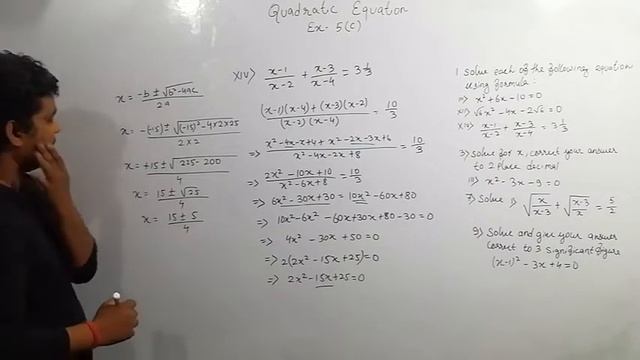 Quadratic Equation
Ex- 5(c)
x = (-b ± √(b² - 4ac))/2a
x = (-(-15) ± √((-15)² - 4×2×25))/(2×2)
x = (+15 ± √(225 - 200))/4
x = (15 ± √25)/4
x = (15 ± 5)/4
XIV) (x-1)/(x-2) + (x-3)/(x-4) = 3 1/3
((x-1)(x-4) + (x-3)(x-2))/((x-2)(x-4)) = 10/3
=> (x² - 4x - x + 4 + x² - 2x - 3x + 6)/(x² - 4x - 2x + 8) = 10/3
=> (2x² - 10x + 10)/(x² - 6x + 8) = 10/3
=> 6x² - 30x + 30 = 10x² - 60x + 80
=> 10x² - 6x² - 60x + 30x + 80 - 30 = 0
=> 4x² - 30x + 50 = 0
=> 2(2x² - 15x + 25) = 0
=> 2x² - 15x + 25 = 0
1 Solve each of the following equation
using formula:
x² + 6x - 10 = 0
√6x² - 4x - 2√6 = 0
XIV) (x-1)/(x-2) + (x-3)/(x-4) = 3 1/3
3) Solve for x, correct your answer
to 2 place decimal
x² - 3x - 9 = 0
7) Solve √(x/(x-3)) + √((x-3)/x) = 5/2
9) Solve and give your answer
correct to 3 significant figure
(x-1)² - 3x + 4 = 0